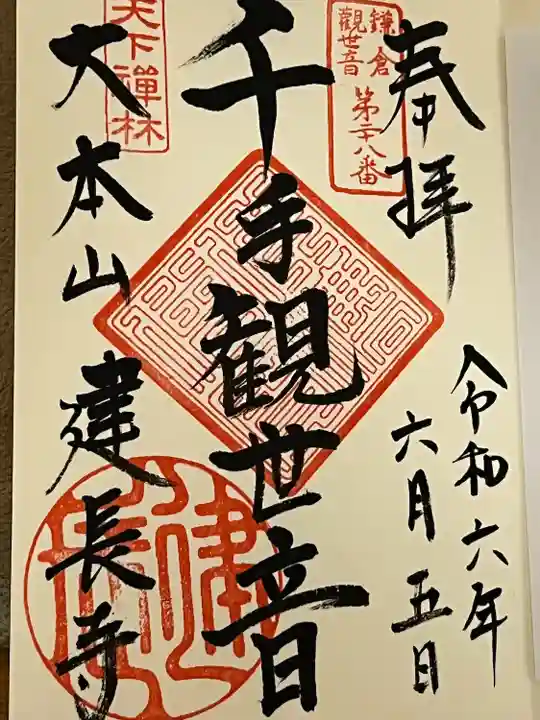 奉拝
鎌倉
観世音
第二十八番
令和六年
六月五日
千手観世音
天下禅林
大本山建長寺